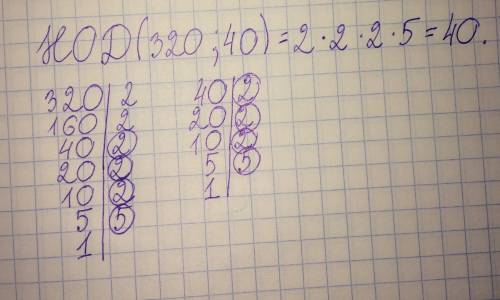 НОД(320;40)=2·2·2·5=40.
320|2 40|2
160|2 20|2
40|2 10|2
20|2 5|5
10|2 1|
5|5
1|